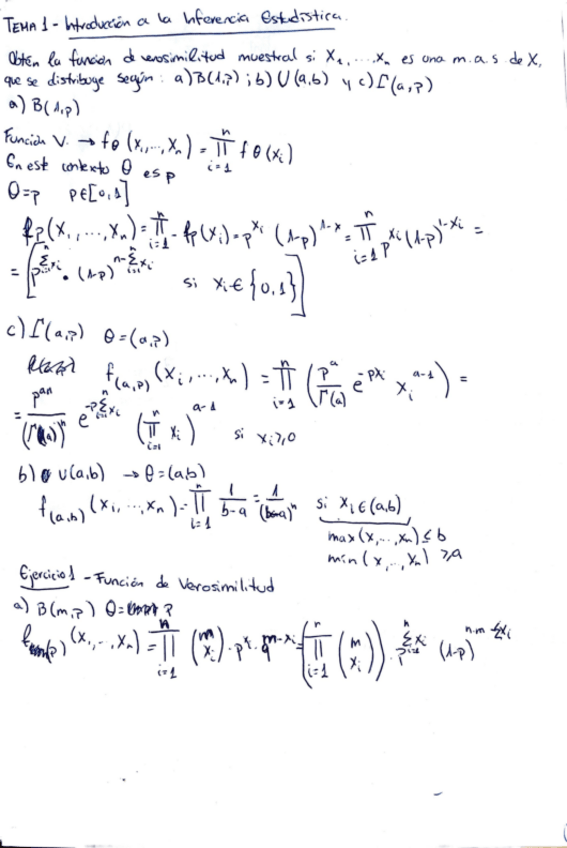 TEMA 1 - Introducción a la Inferencia Estadística.
Obtén la función de verosimilitud muestral si X₁, ... Xₙ es una m.a.s de X,
que se distribuye según: a) B(1,p) ; b) U(a,b) y c) Γ(a,p)
a) B(1,p)
Función V. → f_θ (x₁,...,xₙ) = ∏_{i=1}^{n} f_θ(xᵢ)
En este contexto θ es p
θ=p p∈[0,1]
f_p(x₁,...,xₙ) = ∏_{i=1}^{n} f_p(xᵢ) = p^{xᵢ} (1-p)^{1-x} = ∏_{i=1}^{n} p^{xᵢ} (1-p)^{1-xᵢ} =
= [p^{∑_{i=1}^{n} xᵢ} · (1-p)^{n-∑xᵢ} si xᵢ ∈ {0,1}]
c) Γ(a,p) θ=(a,p)
f_{(a,p)} (xᵢ,...,xₙ) = ∏_{i=1}^{n} (p^a/Γ(a) e^{-pxᵢ} xᵢ^{a-1}) =
= p^{an}/(Γ(a))^n e^{-p∑_{i=1}^{n} xᵢ} (∏_{i=1}^{n} xᵢ)^{a-1} si xᵢ≥0
b) U(a,b) → θ=(a,b)
f_{(a,b)} (xᵢ,...,xₙ) = ∏_{i=1}^{n} 1/(b-a) = 1/(b-a)^n si xᵢ∈(a,b)
max(x,...,xₙ) ≤ b
min(x,...,xₙ) ≥ a
Ejercicio 1 - Función de Verosimilitud
a) B(m,p) θ= p
(x₁,...,xₙ) = ∏_{i=1}^{n} (m xᵢ) · p^{xᵢ} · q^{m-xᵢ} = (∏_{i=1}^{n} (m xᵢ)) · p^{∑_{i=1}^{n} xᵢ} (1-p)^{n·m-∑xᵢ}